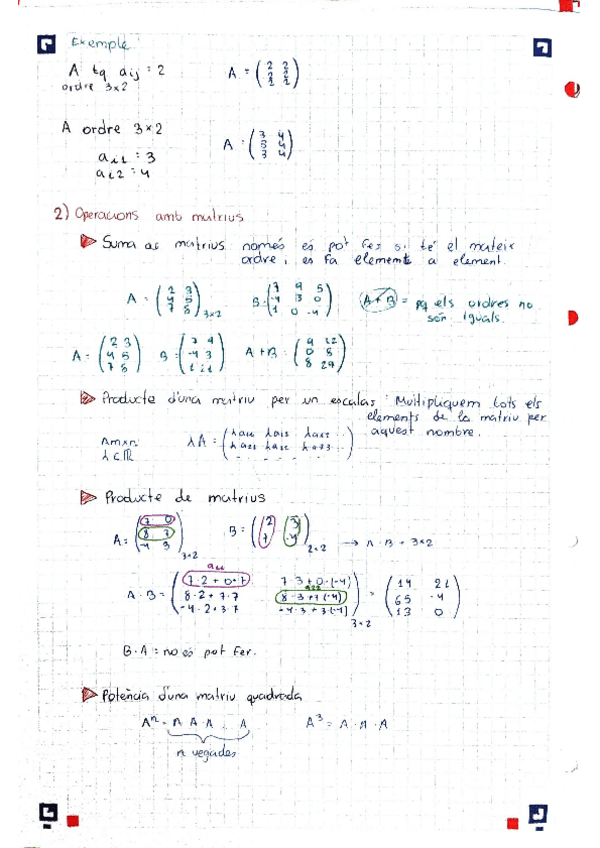 Exemple
A tq aij = 2
ordre 3x2
A = (2 2
2 2
2 2)
A ordre 3x2
ai1 = 3
ai2 = 4
A = (3 4
3 4
3 4)
2) Operacions amb matrius
Suma de matrius només es pot fer si té el mateix
ordre, es fa element a element.
A = (2 3
4 5
7 8) 3x2
B = (7 9 5
-4 3 0
1 0 -4)
A+B = pq els ordres no
són iguals.
A = (2 3
4 5
7 8)
B = (7 9
-4 3
1 21)
A+B = (9 12
0 8
8 29)
Producte d'una matriu per un escalar: Multipliquem tots els
elements de la matriu per
aquest nombre.
Amxn
λ ∈ ℝ
λA = (λa11 λa12 λa13 ...
λa21 λa22 λa23 ...)
Producte de matrius
A = (7 0
8 7
-4 3) 3x2
B = (2 3
7 -4) 2x2
→ A·B = 3x2
a11
a22
A·B = (7·2+0·7 7·3+0·(-4)
8·2+7·7 8·3+7(-4)
-4·2+3·7 -4·3+3(-4)) 3x2
= (14 21
65 -4
13 0)
B·A = no es pot fer.
Potència d'una matriu quadrada
Aⁿ = A·A·A ... A
n vegades
A³ = A·A·A